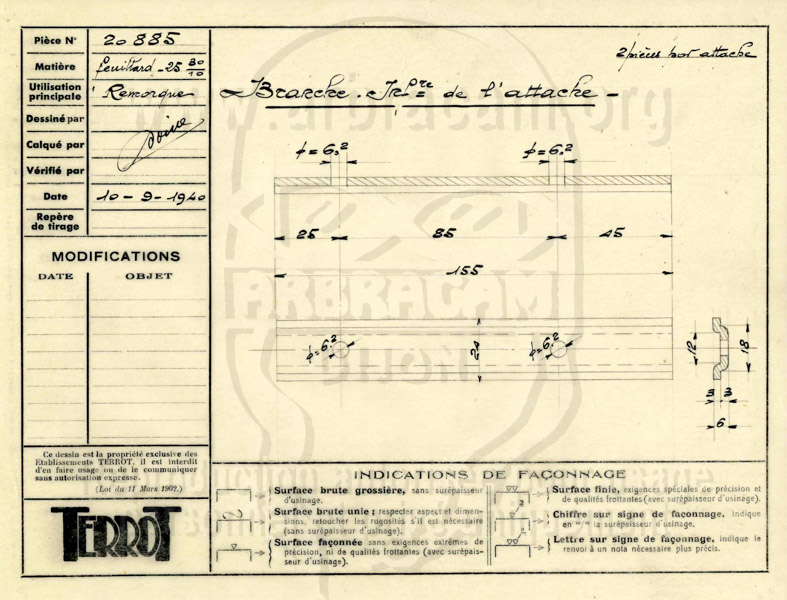 Pièce N° 20885
Matière feuillard - 25 30/10
Utilisation principale Remorque
Dessiné par
Calqué par
Vérifié par
Date 10-9-1940
Repère de tirage
MODIFICATIONS
DATE OBJET
Ce dessin est la propriété exclusive des
Etablissements TERROT, il est interdit
d'en faire usage ou de le communiquer
sans autorisation expresse.
(Loi du 11 Mars 1902.)
TERROT
2 pièces par attache
de l'attache
ϕ = 6,2 ϕ = 6,2
25 85 45
155
ϕ = 6,2 24 ϕ = 6,2 12 18
3 3
6
ARBRACAM
DIJON
www.arbracam.org
INDICATIONS DE FAÇONNAGE
Surface brute grossière, sans surépaisseur
d'usinage.
Surface brute unie ; respecter aspect et dimen-
sions, retoucher les rugosités s'il est nécessaire
(sans surépaisseur d'usinage).
Surface façonnée sans exigences extrêmes de
précision, ni de qualités frottantes (avec surépais-
seur d'usinage).
Surface finie, exigences spéciales de précision et
de qualités frottantes (avec surépaisseur d'usinage).
Chiffre sur signe de façonnage, indique
en m/m la surépaisseur d'usinage.
Lettre sur signe de façonnage, indique le
renvoi à un nota nécessaire plus précis.